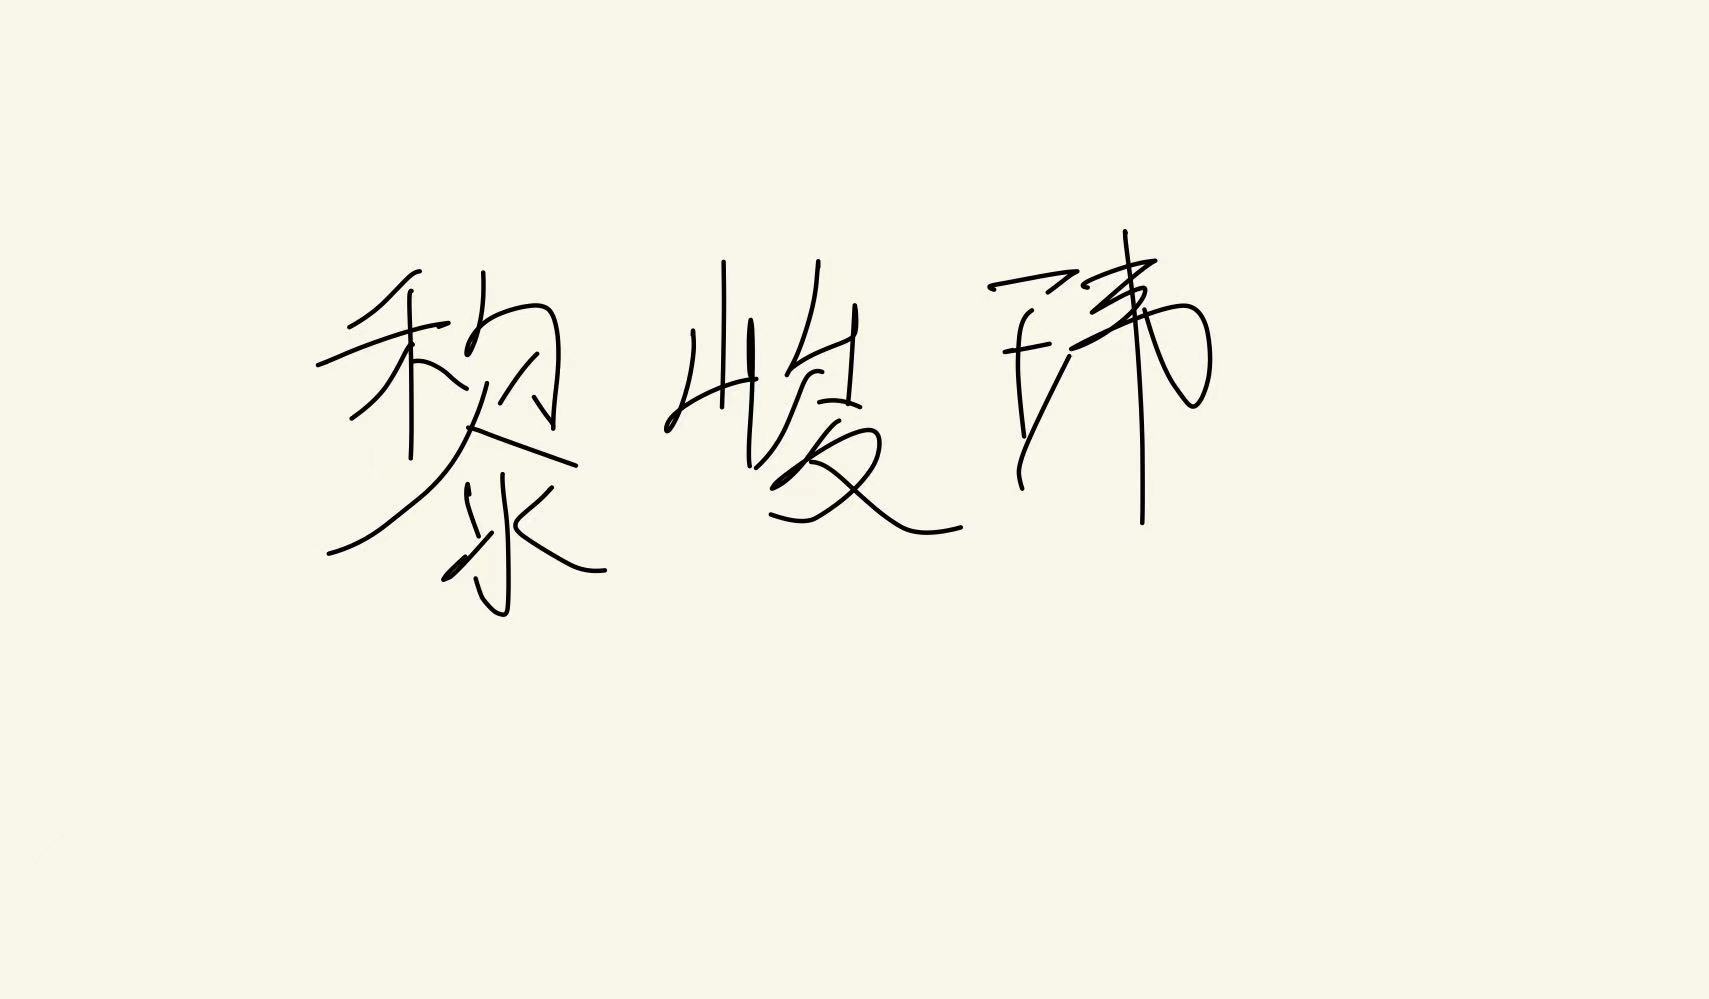 黎峻玮